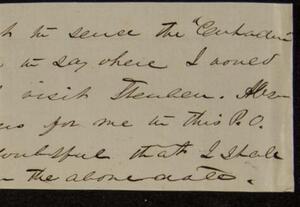 to sence the "Carhadin
to say where I would
visit Steuben. Also
for me in this P.O.
doubtful that I shall
the above date.